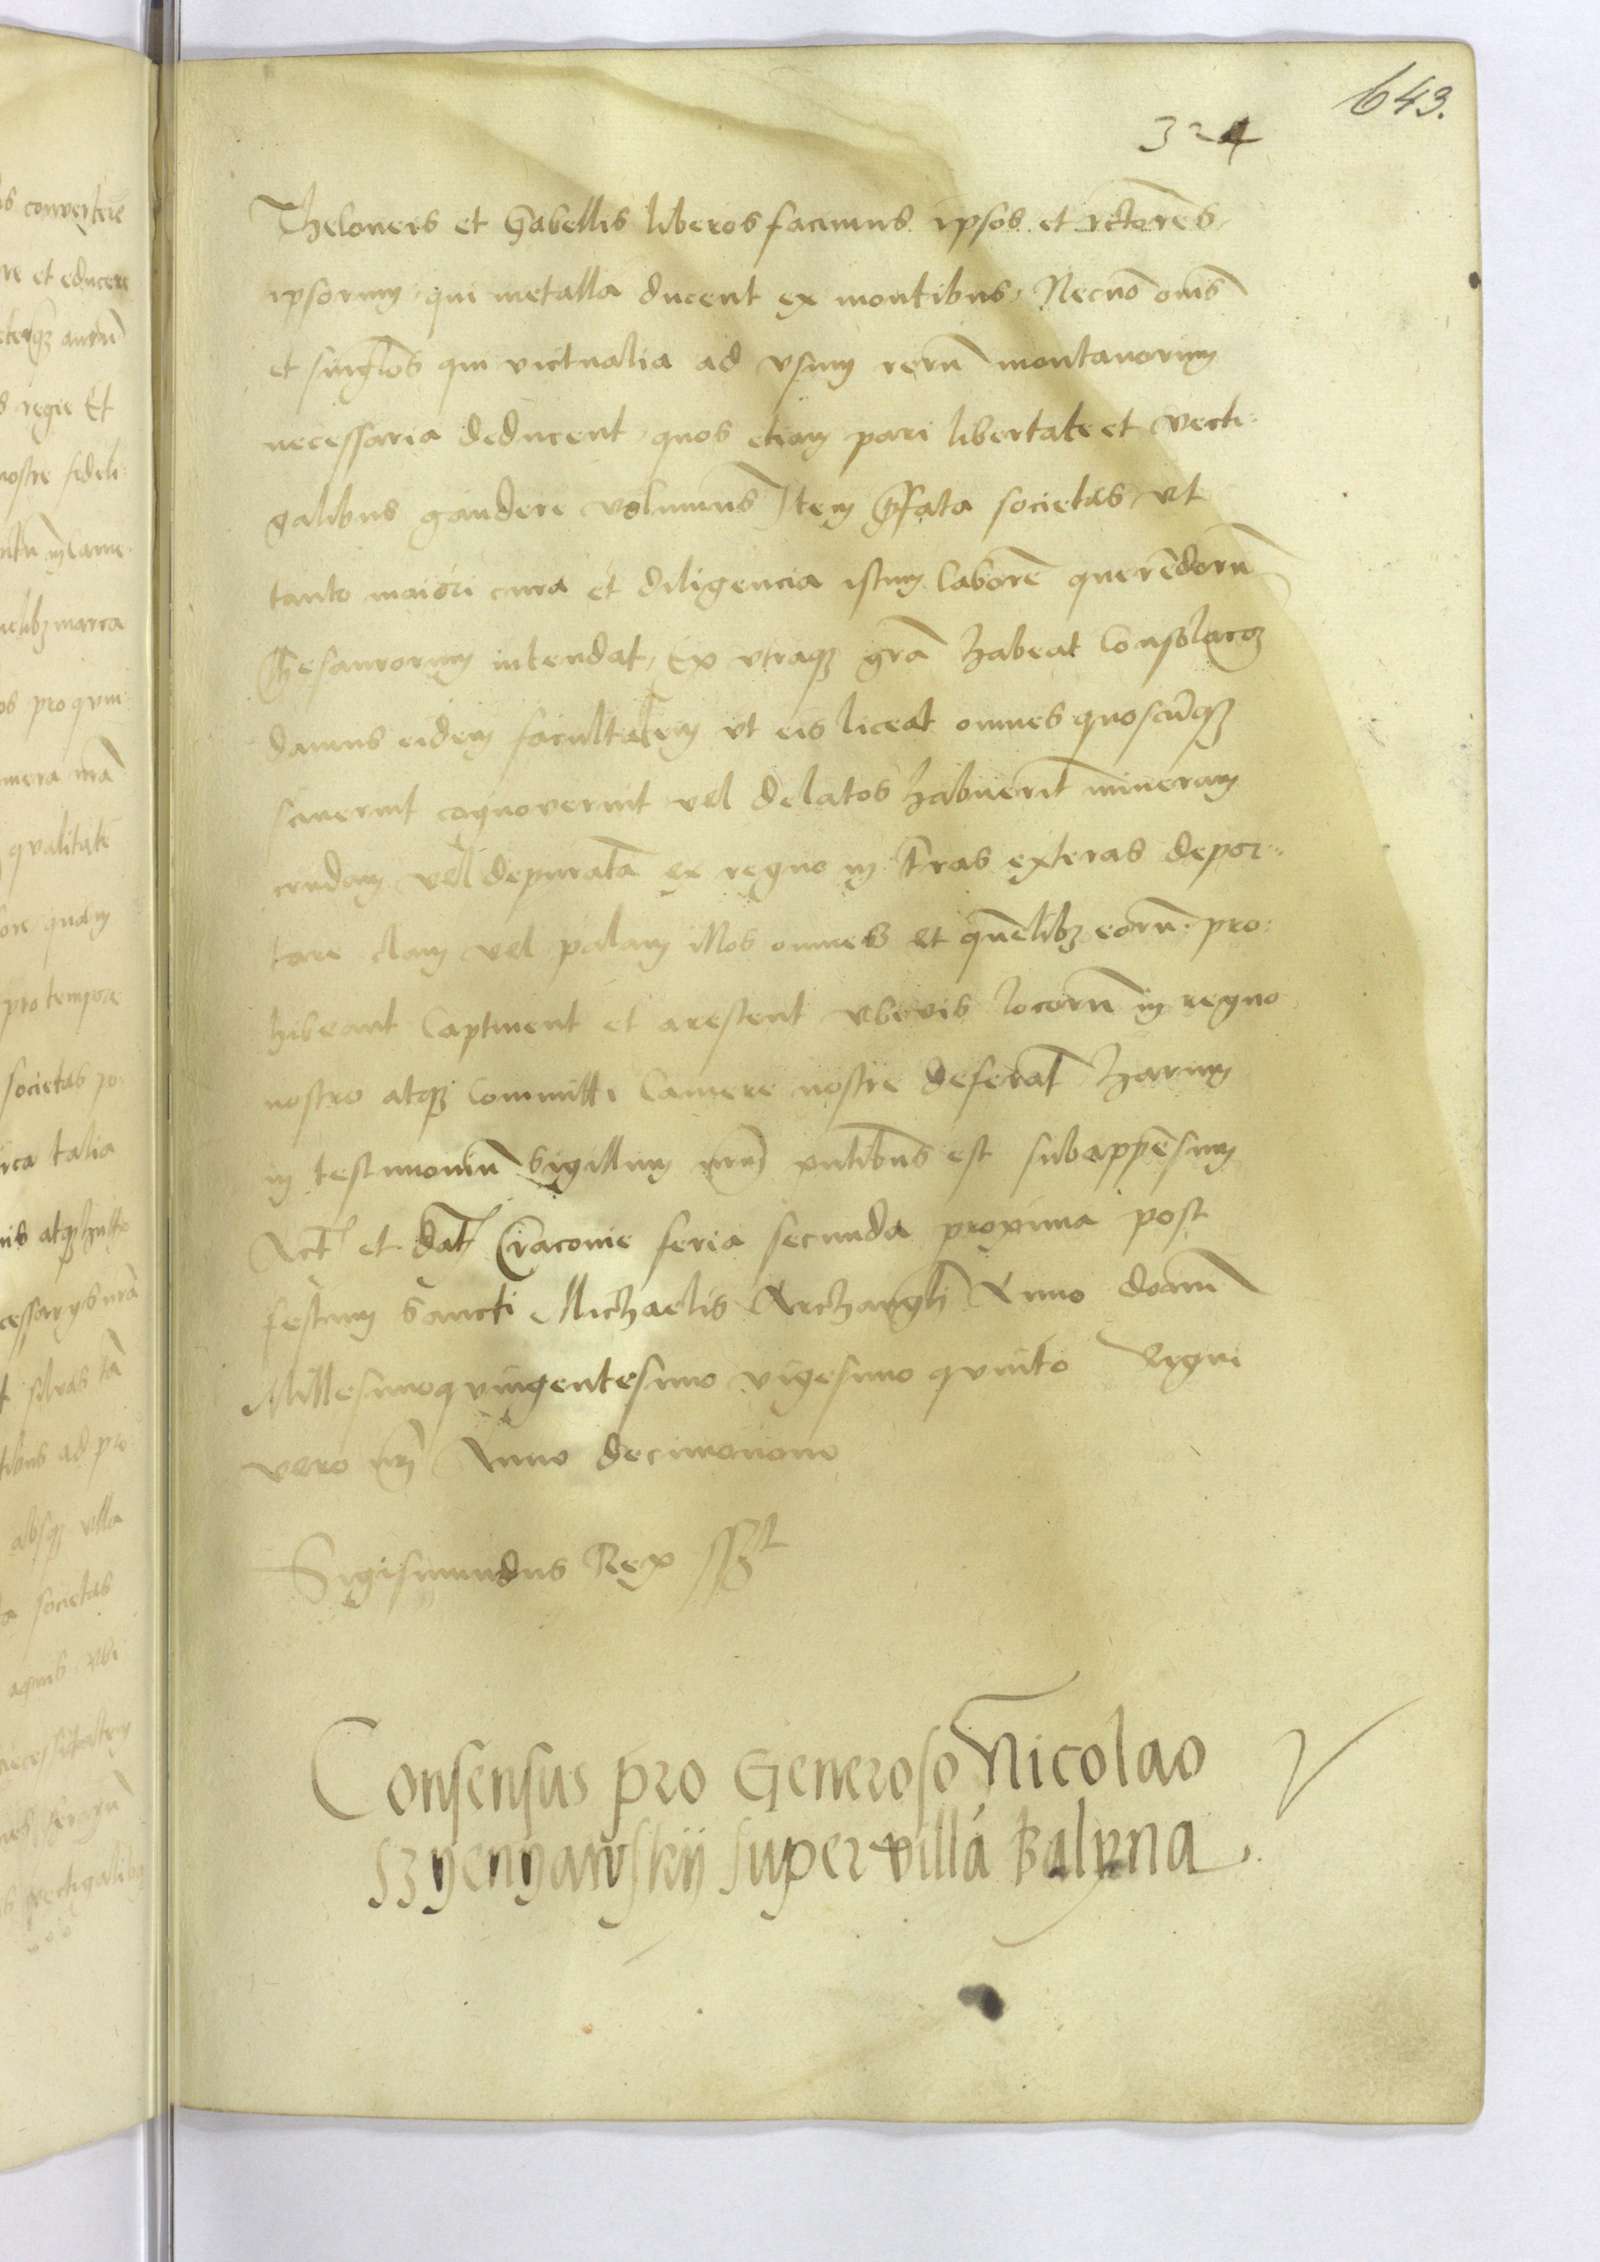 643.
324
Theloneis et Gabellis liberos facimus ipsos et rectores
ipsorum qui metalla ducent ex montibus, Necnõ om̃s
et singl̃os qui victualia ad vsum rerũ montanorum
necessaria deducent quos etiam pari libertate et vecti
galibus gaudere volumus Item p̃fata societas vt
tanto maiori cura et diligencia istum laborẽ querẽdorũ
Thesaurorum intendat, Ex vtraqȝ gr̃a habeat Consolacoȝ
damus eidem facultatem vt eis liceat omnes quoscũqȝ
sciuerint cognouerint vel delatos habuerĩt mineram
crudam vel depuratã ex regno in t̃ras exteras depor
tare clam vel palam illos omnes et quẽlibȝ eorũ pro
hibeant Captiuent et arestent vbiuis locorũ in regno
nostro atqȝ Committi Camere nostre deferãt Harum
in testimoniũ Sigillum nr̃m pñtibus est subappẽsum
Act̃ et dat̃ Cracouie feria secunda proxima post
festum Sancti Michaelis Archangl̃i Anno dom̃
Millesimoquingentesimo vigesimo quinto Regni
vero nr̃i Anno decimonono
Sigismundus Rex sst
Consensus pro Generoso Nicolao
Szyenyawskij super villã Balyna
s convertere
re et educere
aurũ
s regie Et
nostre fideli
marca
os pro quin
mera nr̃a
qualitatẽ
ore quam
pro tempore
societas po
ica talia
nis atqȝ
cessarys
t siluas tã
tibus ad pro
absqȝ vlla
a societas
necessitatem
vectigalibȝ